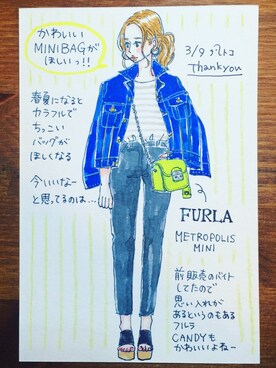 かわいい
MINIBAGが
ほしいっ!!
3/9 プレトコ
Thankyou
春夏になると
カラフルで
ちっこい
バッグが
ほしくなる
今いいなー
と思ってるのは…
FURLA
METROPOLIS
MINI
前販売のバイト
してたので
思い入れが
あるというのもある
フルラ
CANDYも
かわいいよねー